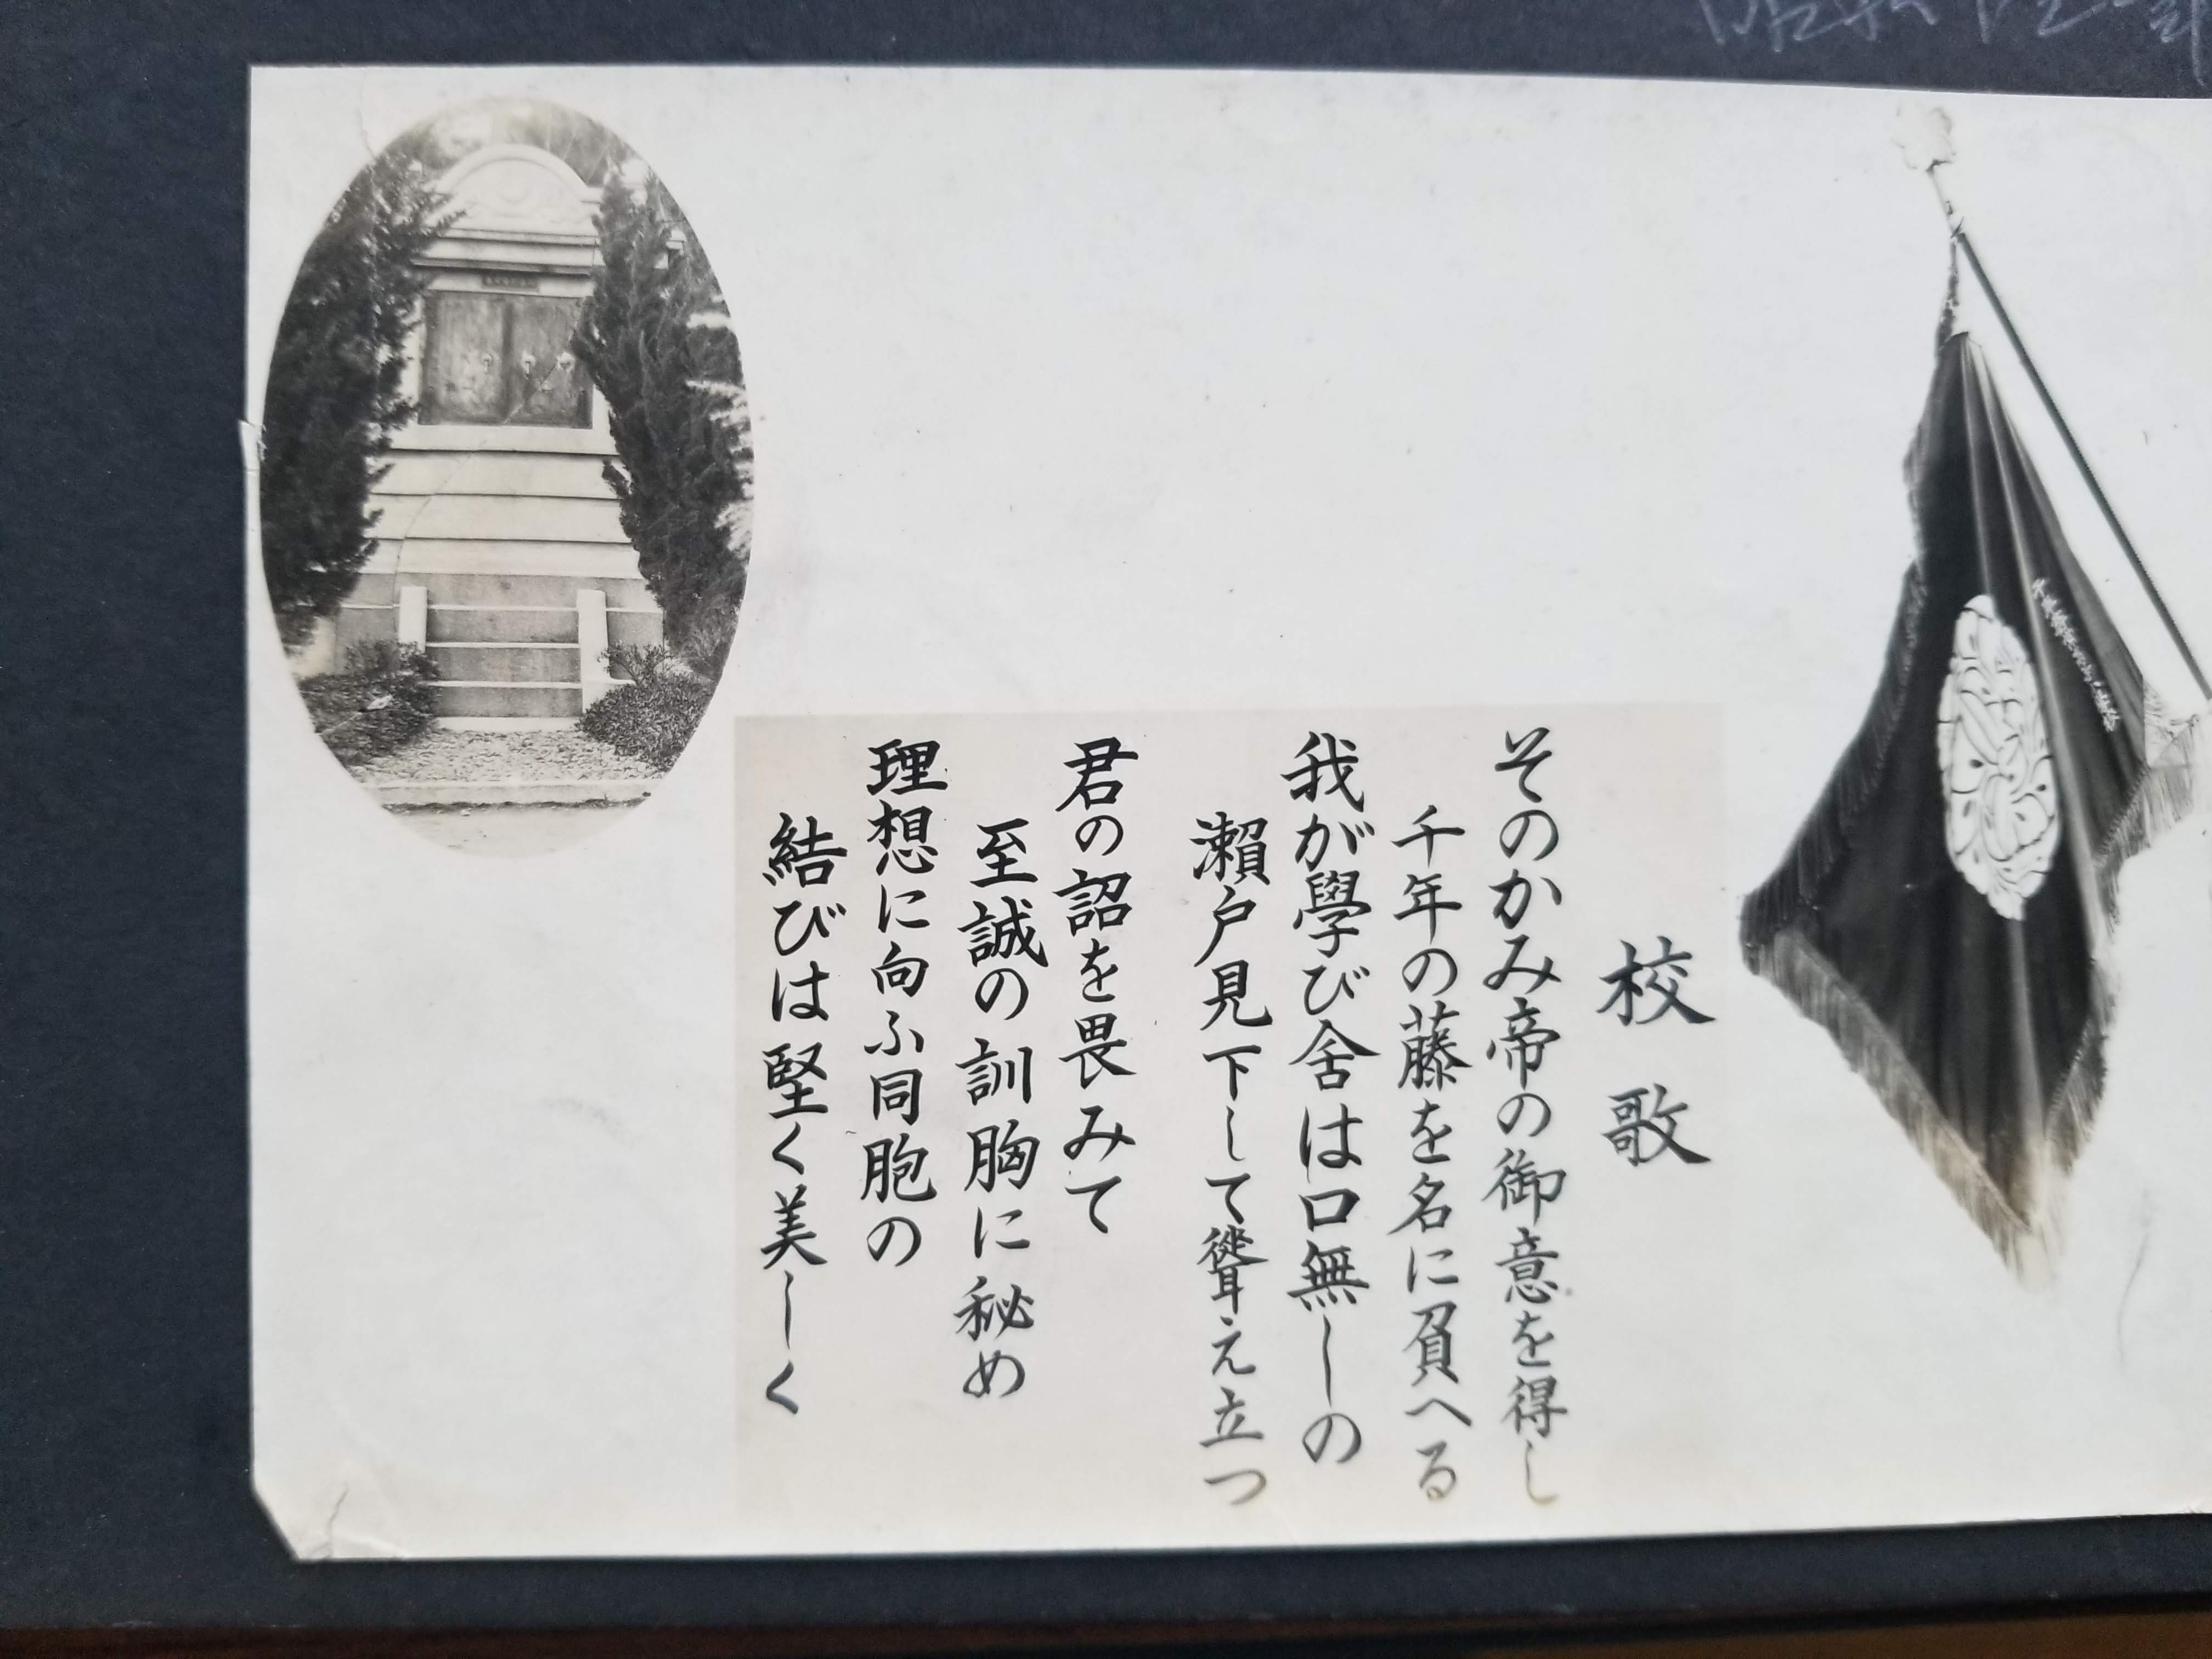 校歌
そのかみ帝の御意を得し
千年の藤を名に負へる
我が學び舎は口無しの
瀬戸見下して聳え立つ
君の詔を畏みて
至誠の訓胸に秘め
理想に向ふ同胞の
結びは堅く美しく